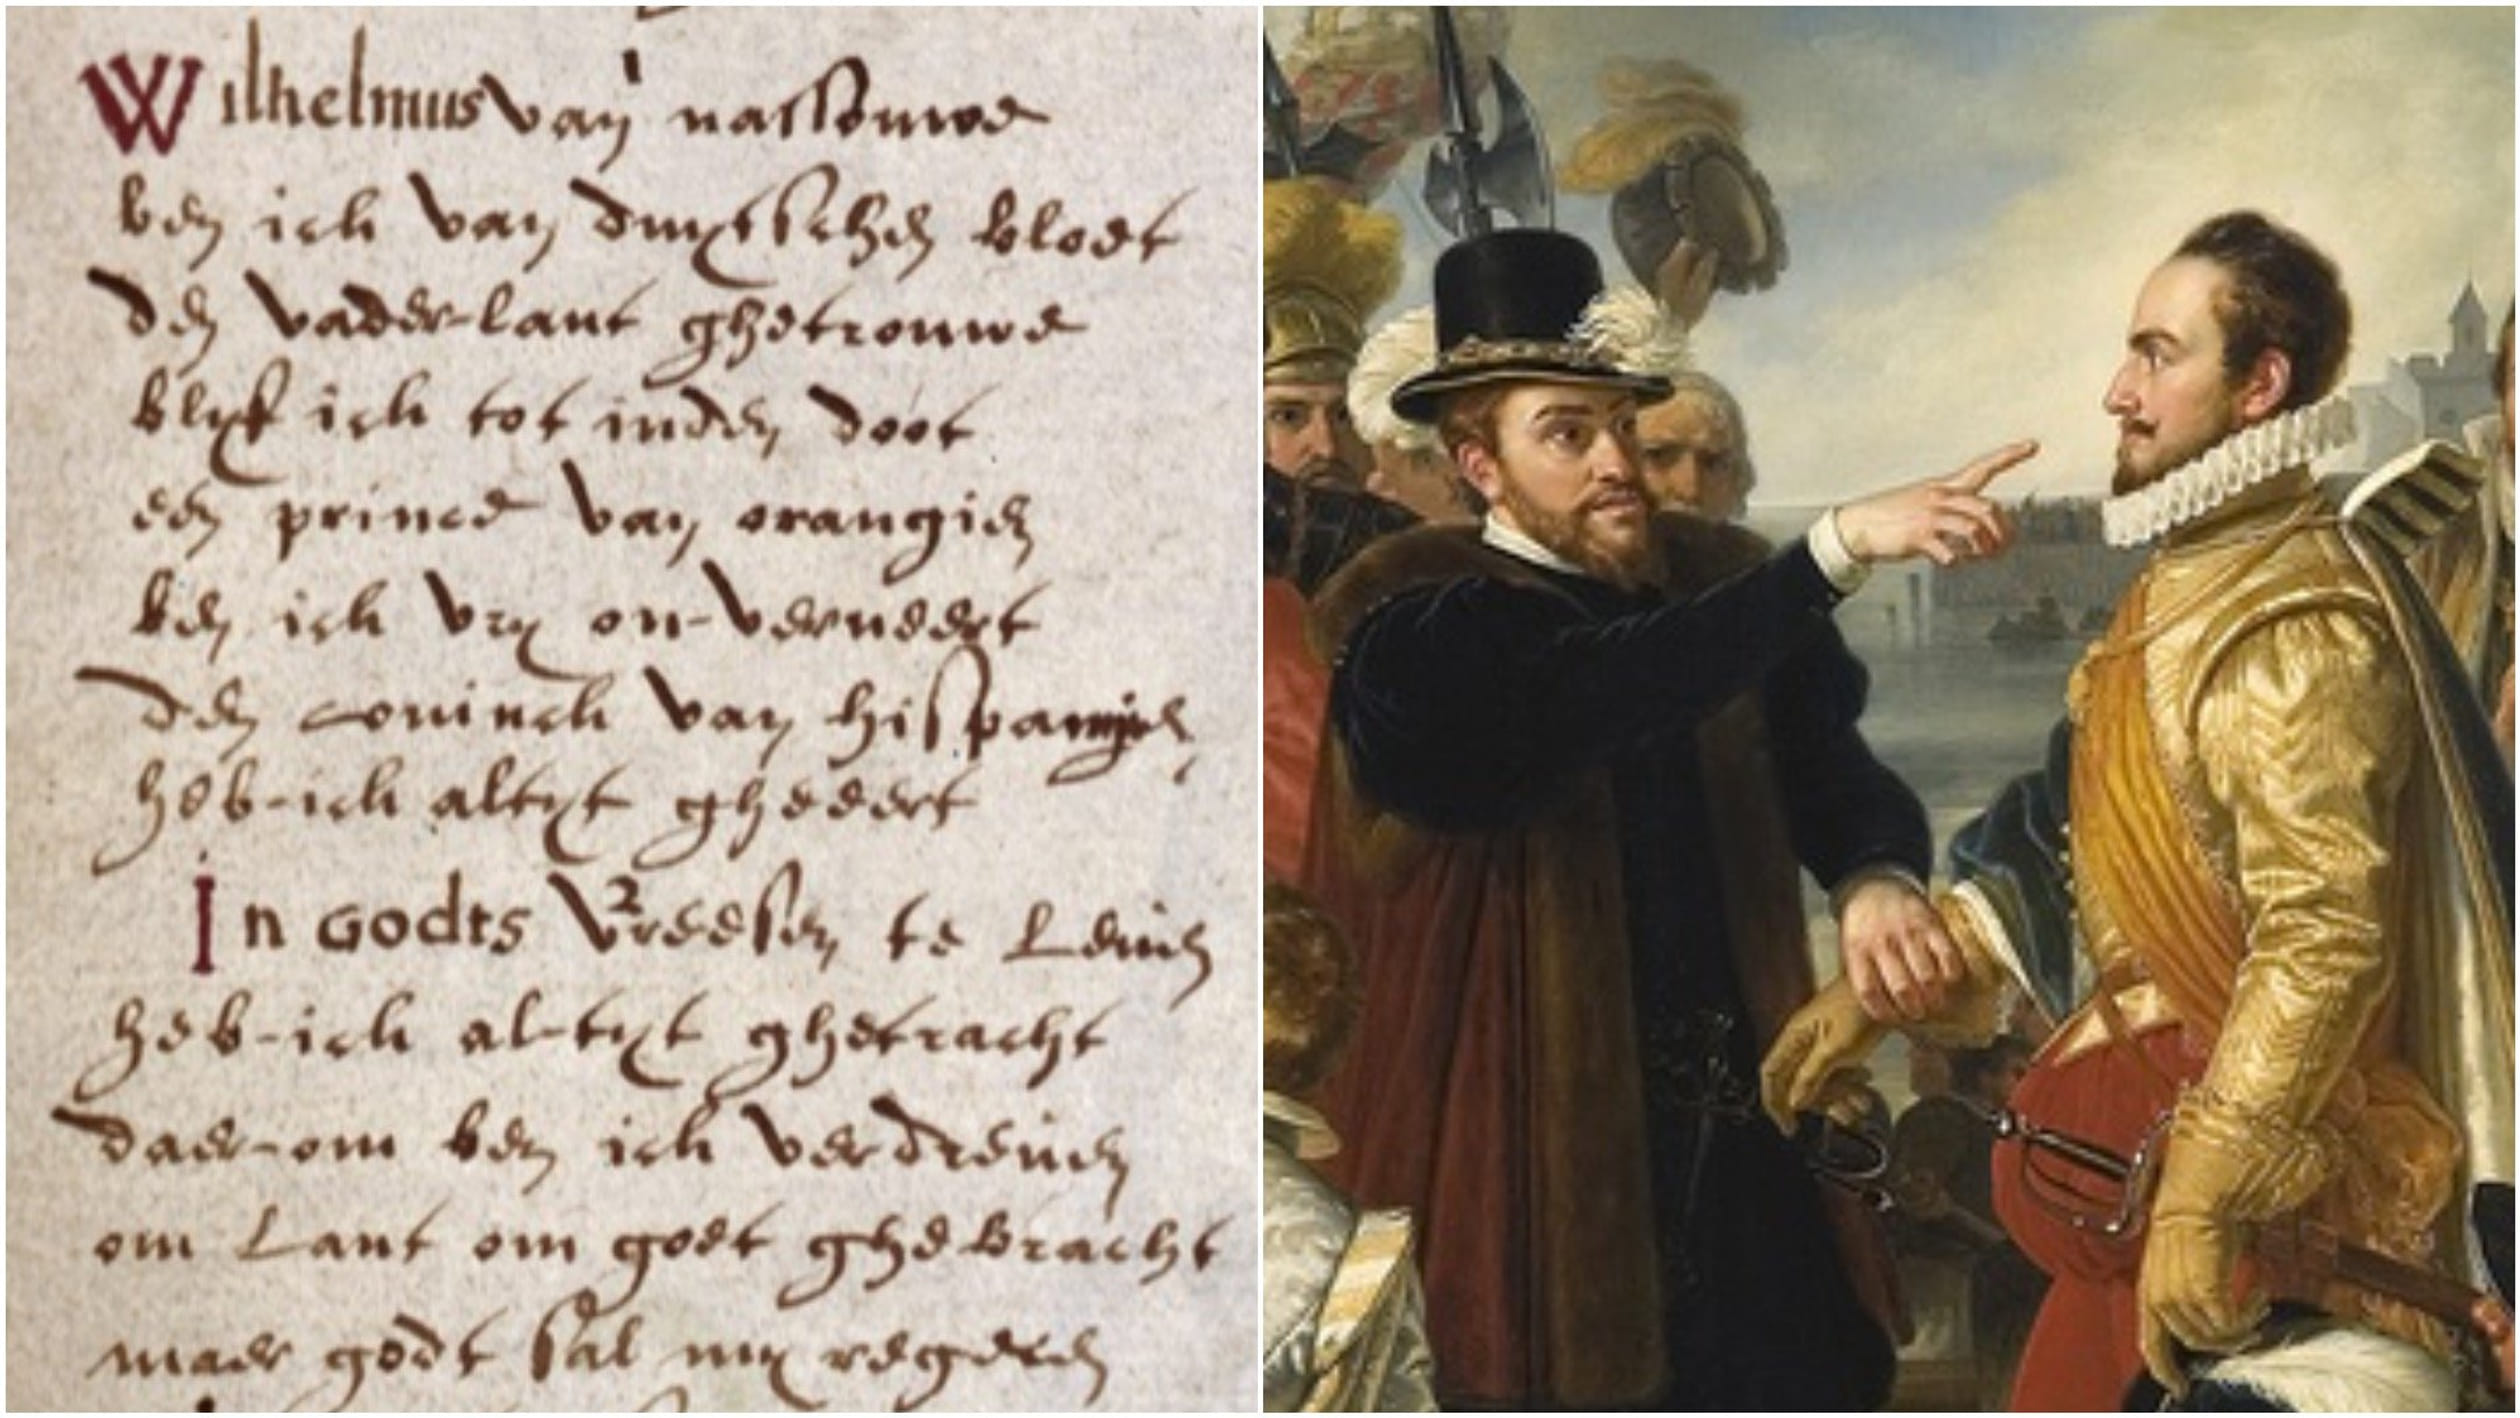 Wilhelmus van nassouwe
ben ich van duytschen bloet
den vader-lant ghetrouwe
blyf ich tot inden doot
een prince van orangien
ben ich vry on-verveert
den coninch van hispanien
heb-ich altyt gheeert
In Godts vreesen te Leuen
heb-ich al-tyt ghetracht
daer-om ben ich verdreuen
om Lant om goet ghebracht
maer godt sal my regeren